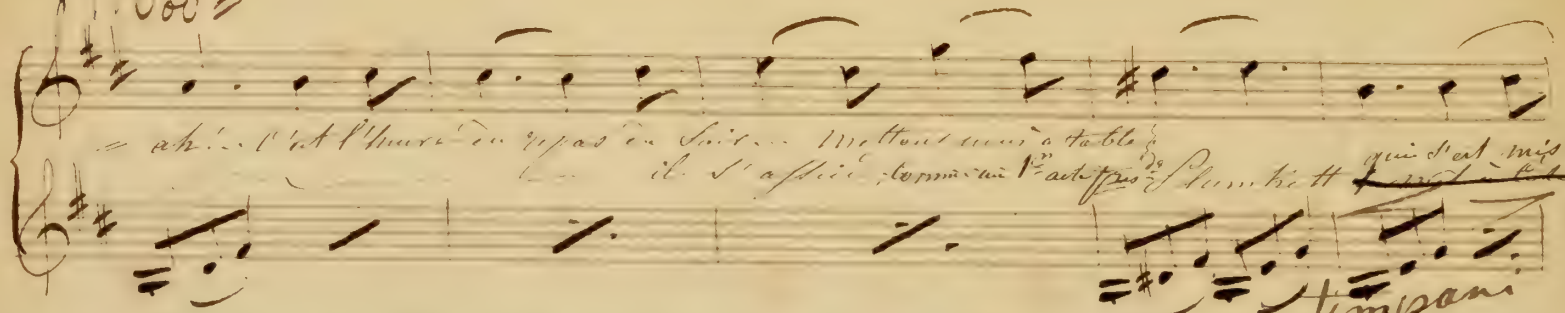 = ah!... c'est l'heure du repas du Soir... mettons nous à table
il s'assied comme au 1er acte près de Plumkett qui s'est mis
timpani